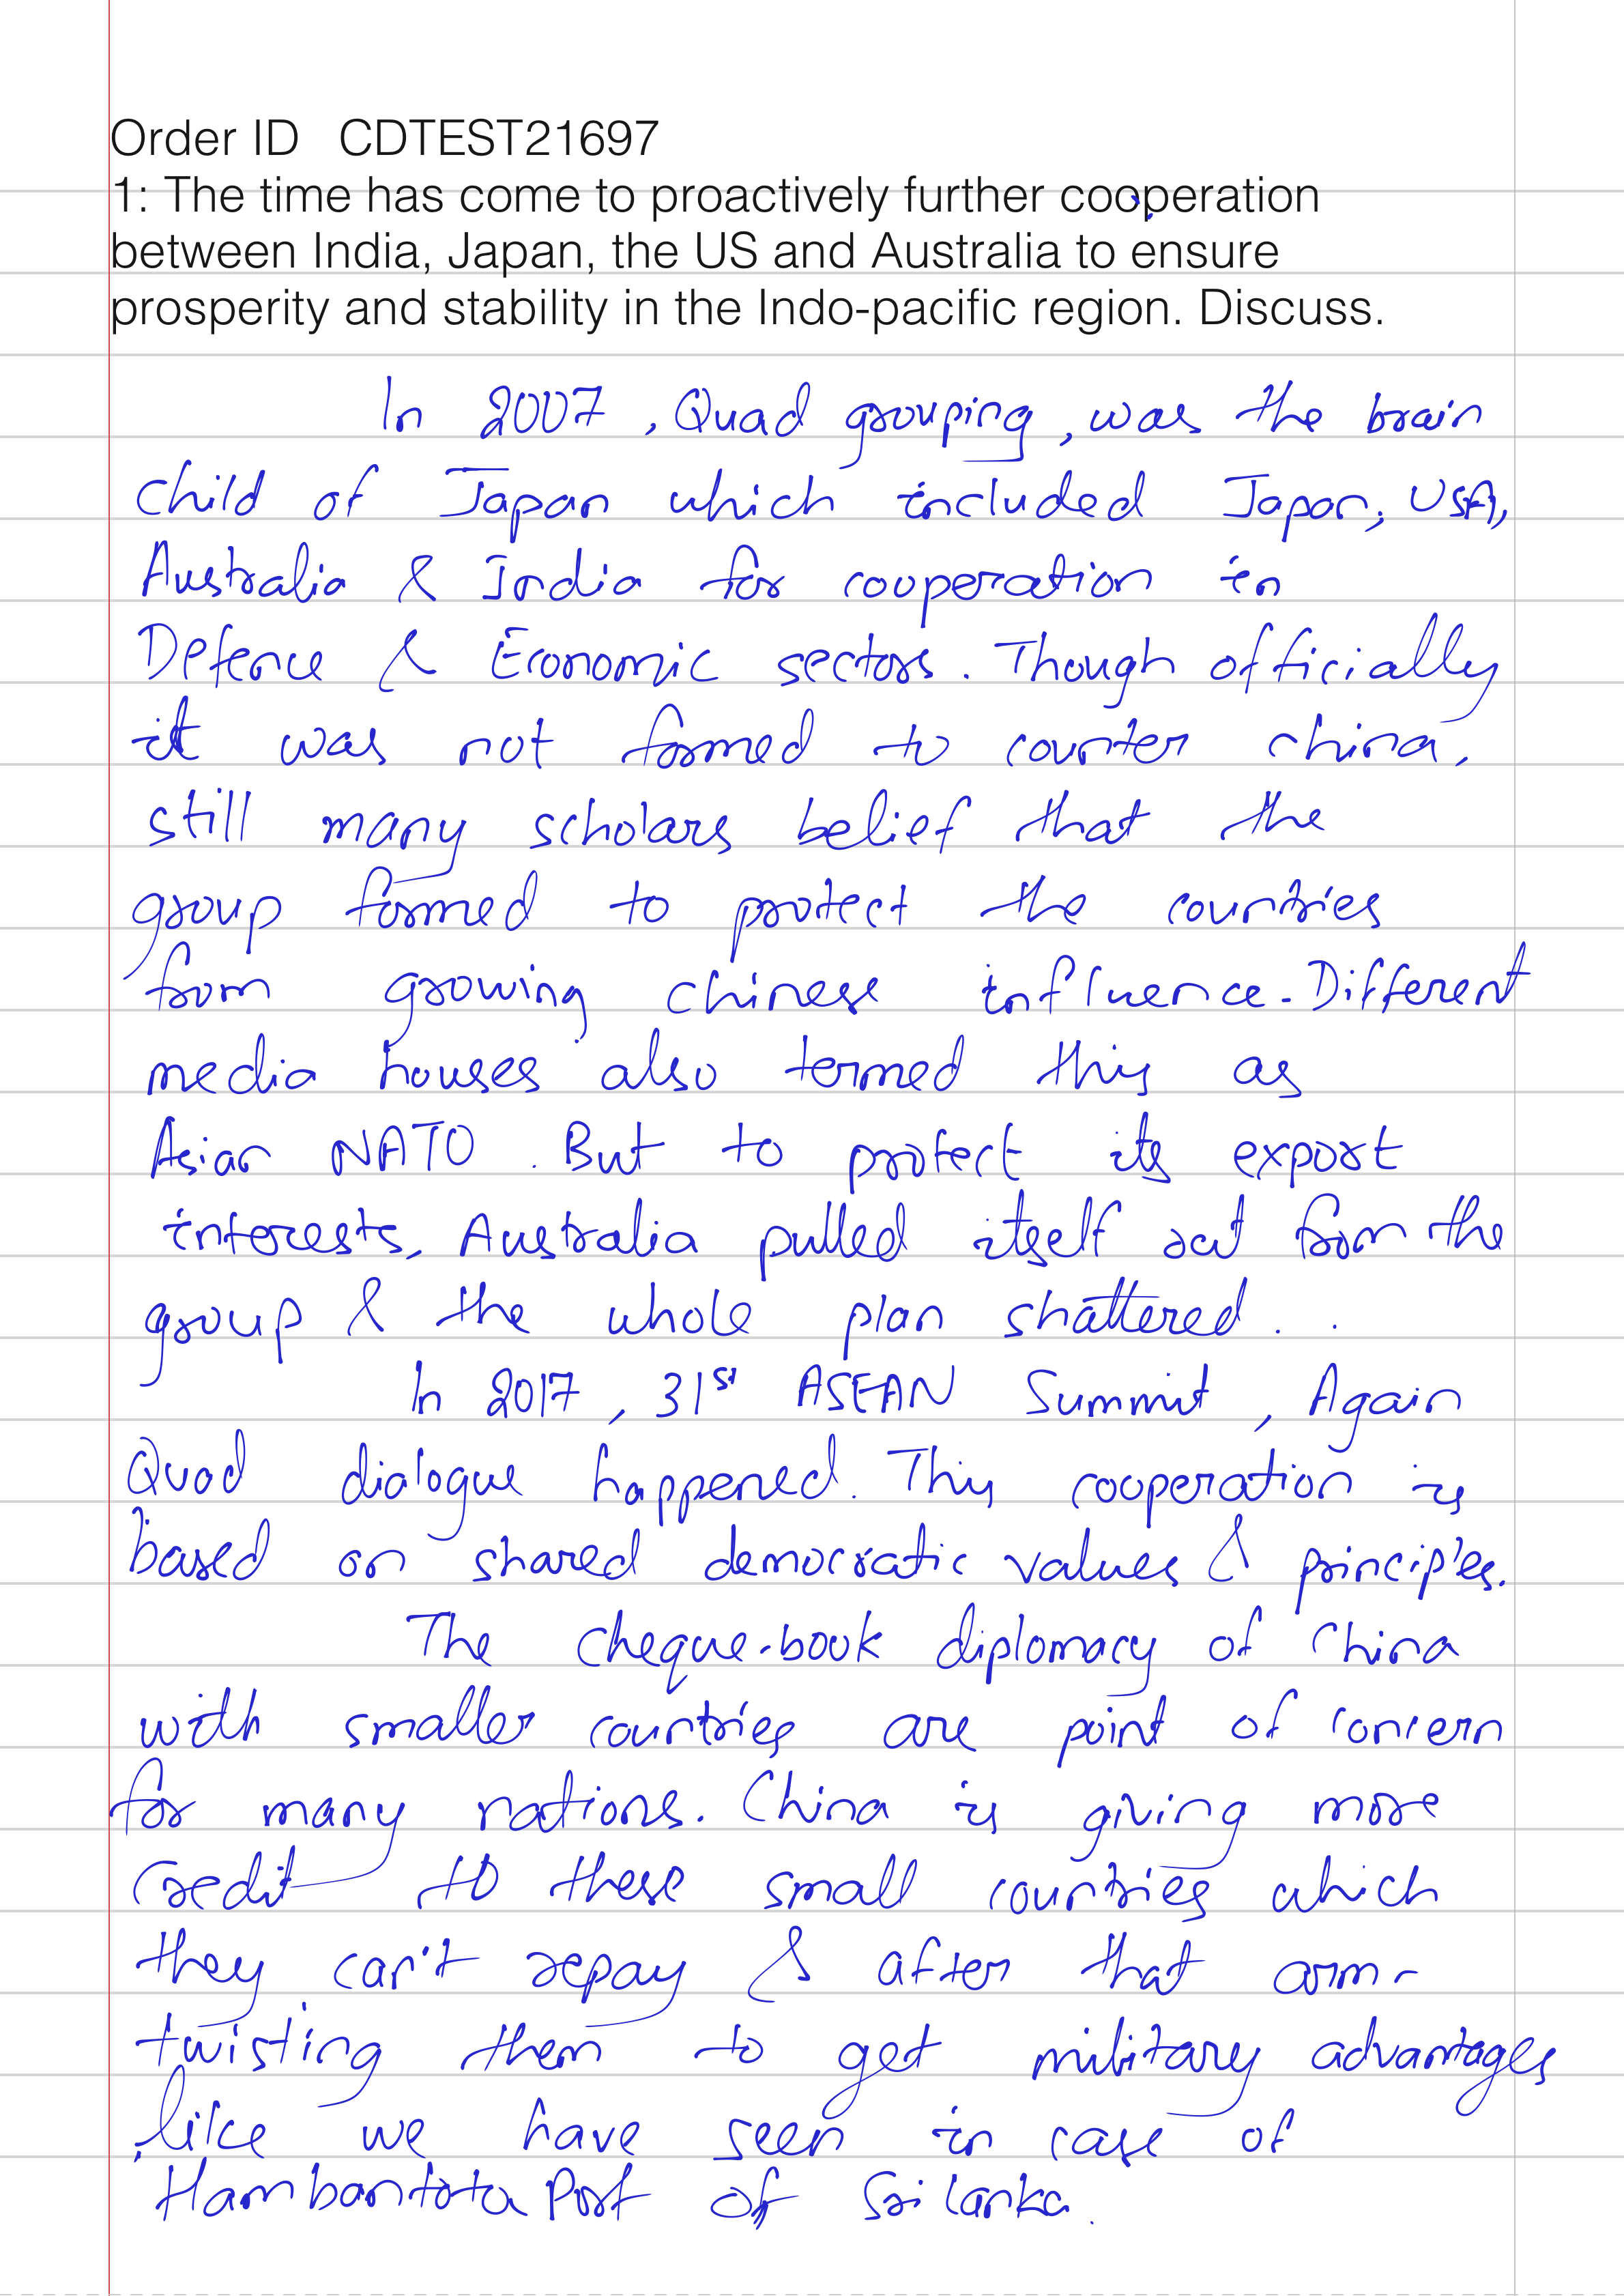 Order ID CDTEST21697
1: The time has come to proactively further cooperation
between India, Japan, the US and Australia to ensure
prosperity and stability in the Indo-pacific region. Discuss.
In 2007, Quad grouping, was the brain
child of Japan which included Japan, USA,
Australia & India for cooperation in
Defence & Economic sectors. Though officially
it was not formed to counter china,
still many scholars belief that the
group formed to protect the countries
from growing chinese influence. Different
media houses also termed this as
Asian NATO. But to protect its export
interests, Australia pulled itself out from the
group & the whole plan shattered.
In 2017, 31st ASEAN Summit, Again
Quad dialogue happened. This cooperation is
based on shared democratic values & principles.
The cheque-book diplomacy of China
with smaller countries are point of concern
for many nations. China is giving more
credit to these small countries which
they can't repay & after that arm-
twisting them to get military advantages
like we have seen in case of
Hambantota Port of Sri lanka.